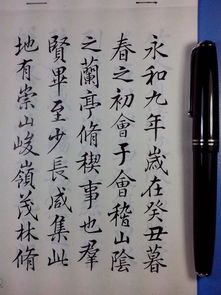 永和九年歲在癸丑暮
春之初會于會稽山陰
之蘭亭脩稧事也羣
賢畢至少長咸集此
地有崇山峻嶺茂林脩